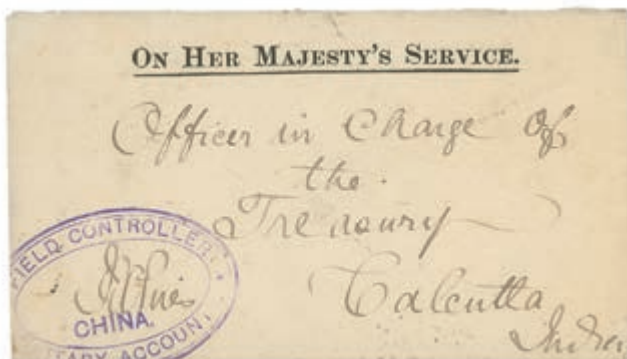 ON HER MAJESTY'S SERVICE.
Officer in Charge of
the
Treasury
Calcutta
India
FIELD CONTROLLER
CHINA.
MILITARY ACCOUNT